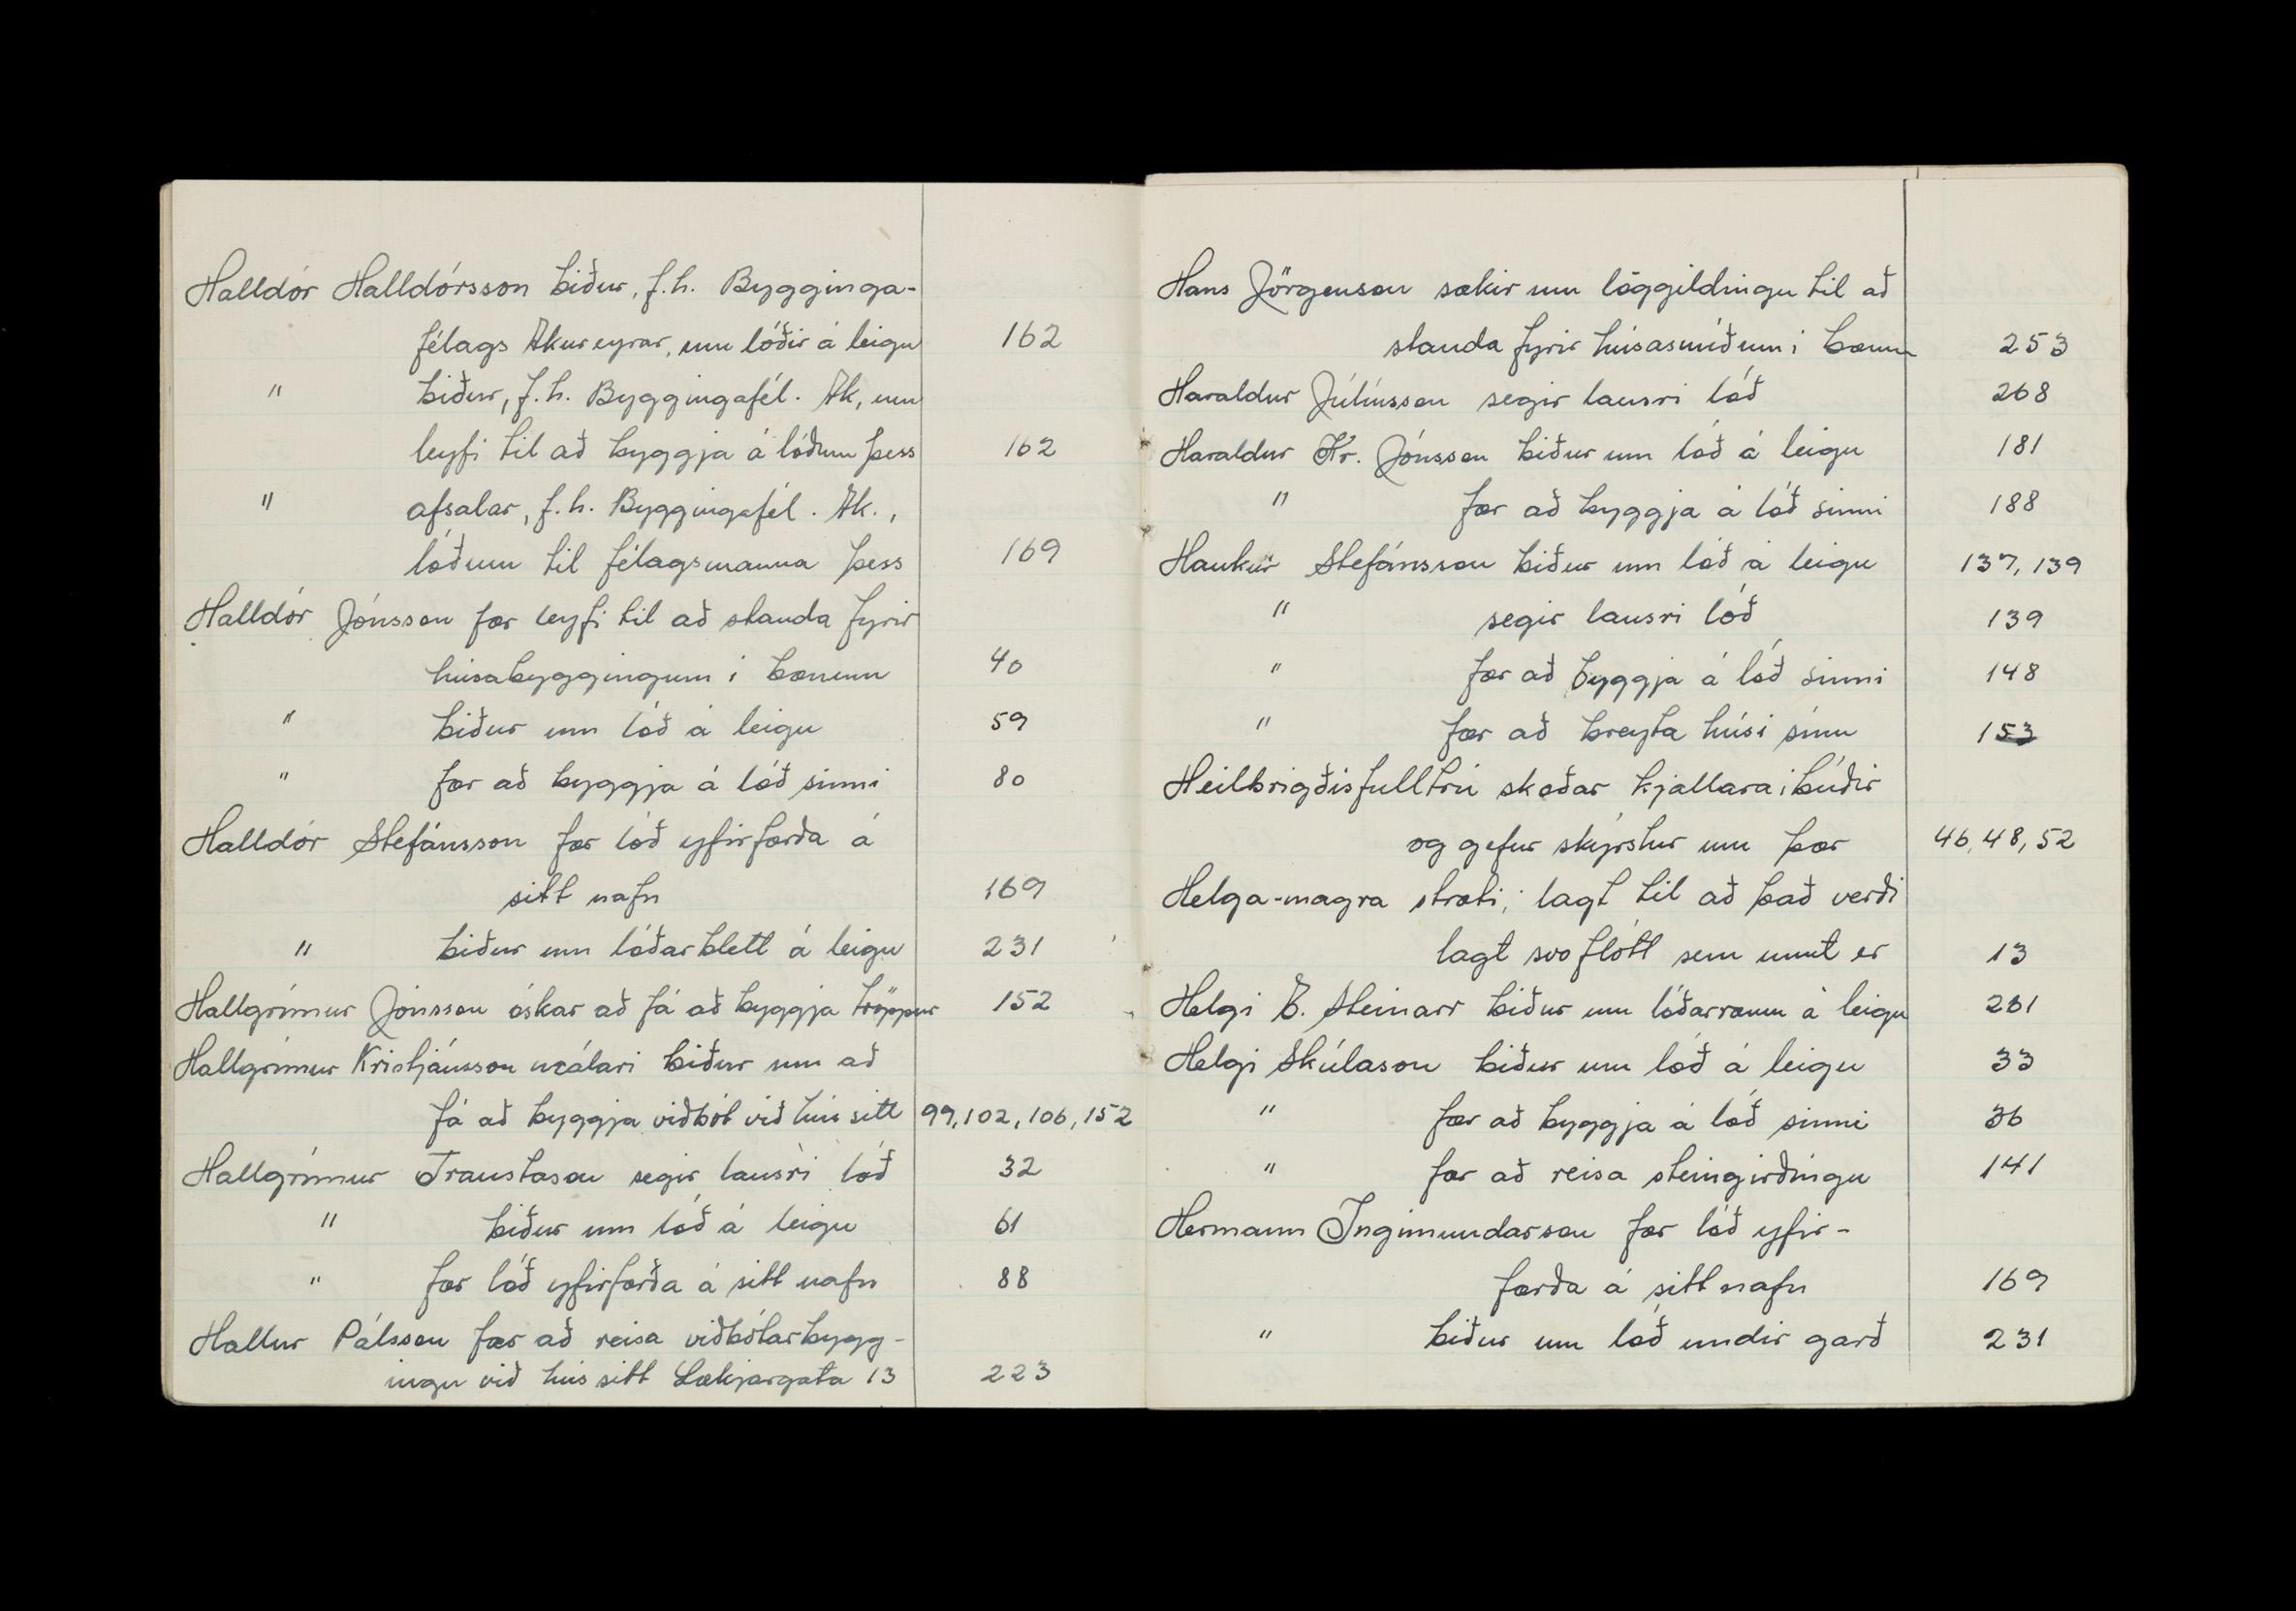 Halldór Halldórsson biður, f.h. Bygginga-
félags Akureyrar, um lóðir á leigu 162
" biður, f.h. Byggingafél. Ak, um
leyfi til að byggja á lóðum þess 162
" afsalar, f.h. Byggingafél. Ak.,
lóðum til félagsmanna þess 169
Halldór Jónsson fær leyfi til að standa fyrir
húsabyggingum í bænum 40
" biður um lóð á leigu 59
" fær að byggja á lóð sinni 80
Halldór Stefánsson fær lóð yfirfærða á
sitt nafn 169
" biður um lóðarblett á leigu 231
Hallgrímur Jónsson óskar að fá að byggja tröppur 152
Hallgrímur Kristjánsson málari biður um að
fá að byggja viðbót við hús sitt 99, 102, 106, 152
Hallgrímur Traustason segir lausri lóð 32
" biður um lóð á leigu 61
" fær lóð yfirfærða á sitt nafn 88
Hallur Pálsson fær að reisa viðbótarbygg-
ingu við hús sitt Lækjargata 13 223
Hans Jörgenson sækir um löggildingu til að
standa fyrir húsasmíðum í bænum 253
Haraldur Júlíusson segir lausri lóð 268
Haraldur Kr. Jónsson biður um lóð á leigu 181
" fær að byggja á lóð sinni 188
Haukur Stefánsson biður um lóð á leigu 137, 139
" segir lausri lóð 139
" fær að byggja á lóð sinni 148
" fær að breyta húsi sínu 153
Heilbrigðisfulltrú skoðar kjallaraíbúðir
og gefur skýrslur um þær 46, 48, 52
Helga-magra stræti; lagt til að það verði
lagt svo fljótt sem unnt er 13
Helgi B. Steinarr biður um lóðarræmu á leigu 261
Helgi Skúlason biður um lóð á leigu 33
" fær að byggja á lóð sinni 36
" fær að reisa steingirðingu 141
Hermann Ingimundarson fær lóð yfir-
færða á sitt nafn 169
" biður um lóð undir garð 231